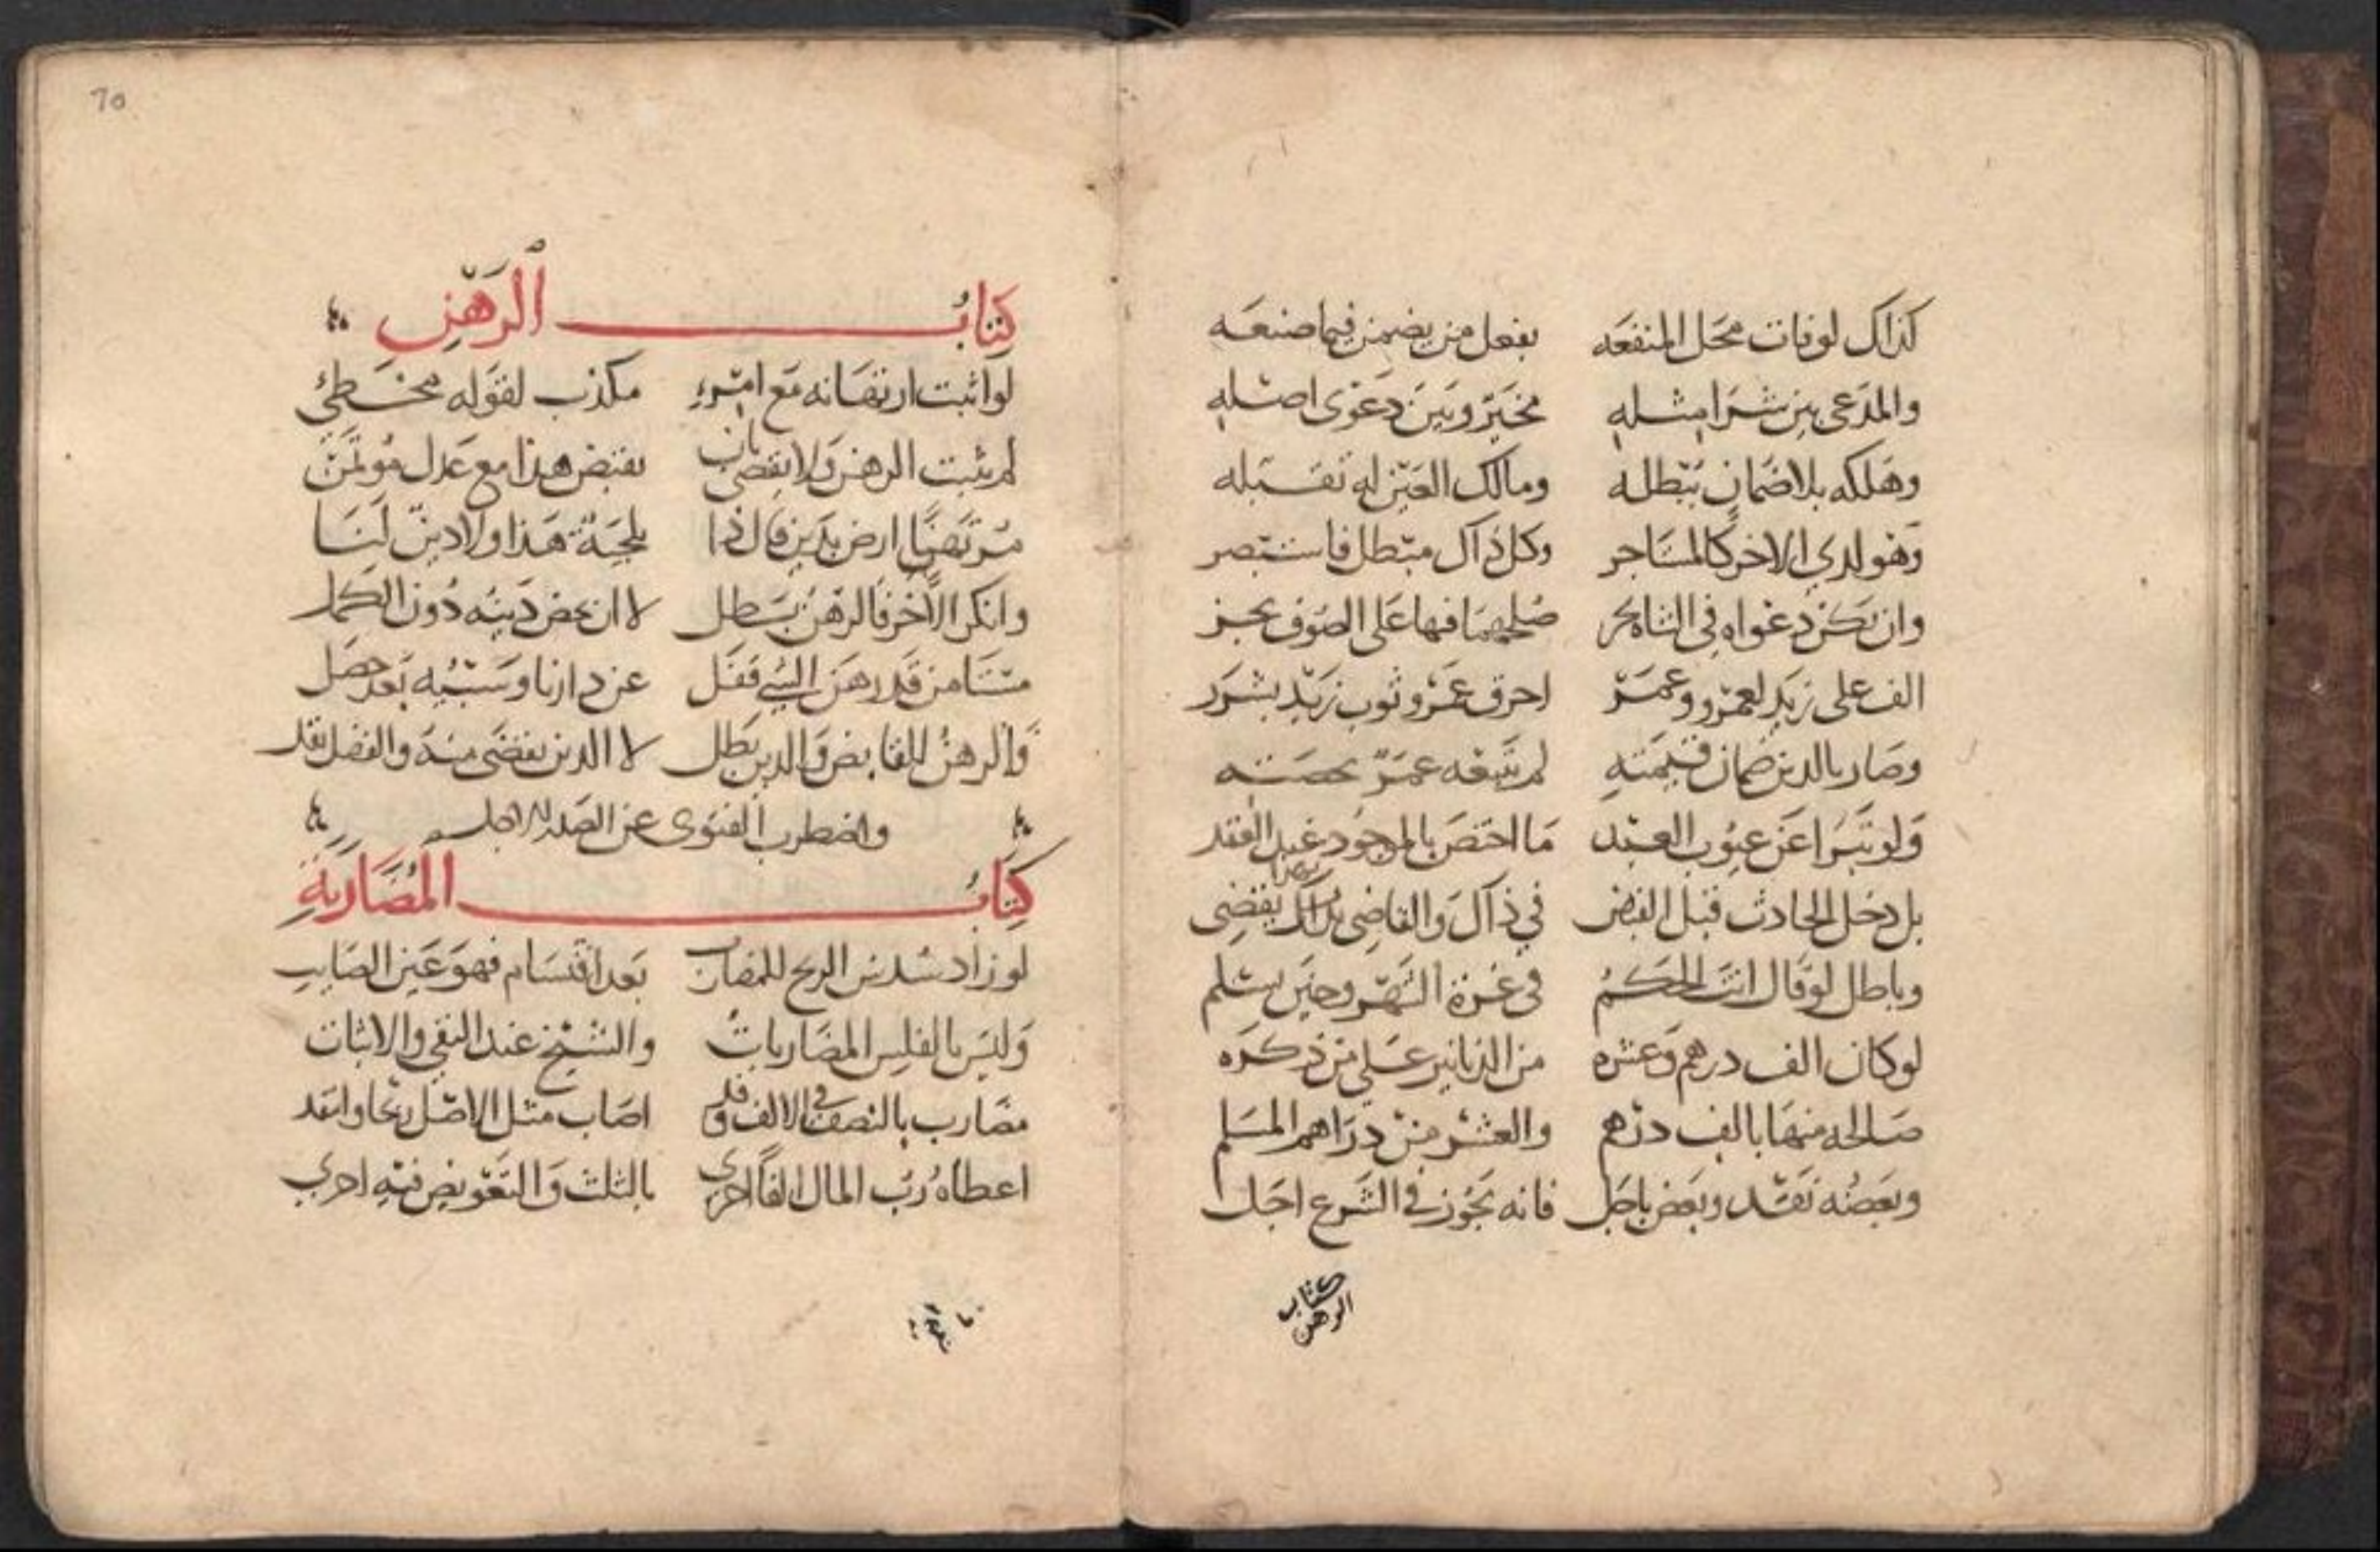 كذاك لوفات محل المنفعه بفعل من يضمن فيما صنعه
والمدعى بين شرا مثله مخير وبين دعوى اصله
وهلكه بلا ضمان يبطله ومالك العين له تقبله
وهو لدي الاخر كالمستاجر وكل ذاك مبطل فاستبصر
وان تكن دعواه في الشاه صلحهما فيها على الصوف يجز
الف على زيد لعمرو وعمر احرق عمرو ثوب زيد بشرر
وصار بالدين ضمان قيمته لم يتبعه عمر بحصته
ولو تبرا عن عيوب العبد ما اختص بالموجود عند العقد
بل دخل الحادث قبل القبض في ذاك والقاضي يقضى
وباطل لو قال انت الحكم في غرة الشهر وحين يسلم
لو كان الف درهم وعشره من الدنانير على من ذكره
صالحه منها بالف درهم والعشر من دراهم المسلم
وبعضه نقد وبعض باجل فانه يجوز في الشرع اجل
كتاب الرهن
70
كتاب الرهن
لو اثبت ارتهانه مع امرء مكذب لقوله مخطئ
لم يثبت الرهن ولا يقضى بان يقبض هذا مع عدل مؤتمن
مرتهنا ارض بدين قال ذا هذا ولا دين لنا
وانكر الآخر فالرهن بطل لا ان بعض دينه دون الكمل
والرهن للقابض والدين بطل لا الدين يقضى منه والفضل
واضطرب الفتوى عن الصدر الاجل
كتاب المضاربة
لو زاد سدس الربح للمضارب بعد اقتسام فهو عين الصايب
وليس بالفلس المضاربات والشيخ عند النفي والاثبات
مضارب بالنصف في الالف وقد اصاب مثل الاصل ربحا وانتقد
اعطاه رب المال الفا اخرى بالثلث والتفويض فيه اجرى